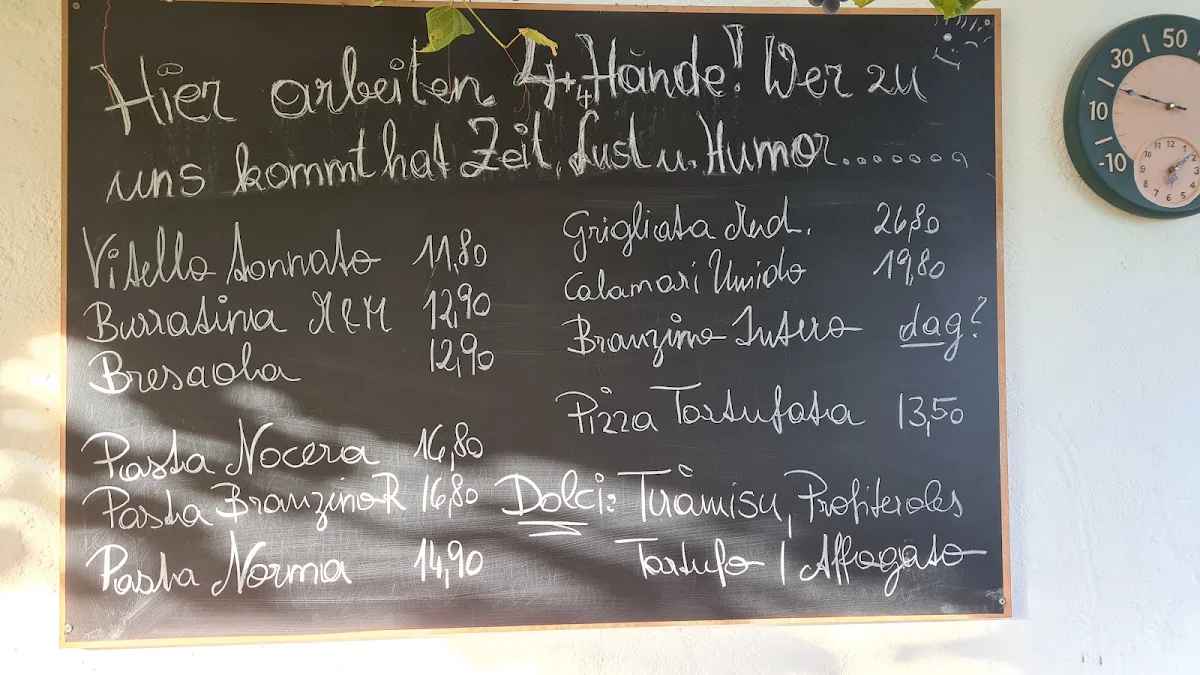 Hier arbeiten 4+4 Hände! Wer zu
uns kommt hat Zeit, Lust u. Humor........
Vitello tonnato 11,80
Burratina 12,90
Bresaola 12,90
Pasta Nocera 16,80
Pasta Branzino R 16,80
Pasta Norma 14,90
Grigliata Med. 26,80
Calamari Umido 19,80
Branzino Intero dag?
Pizza Tartufata 13,50
Dolci: Tiramisu, Profiteroles
Tartufo / Affogato
50
30
10
-10
12
1
2
3
5
6
7
8
9
10
11